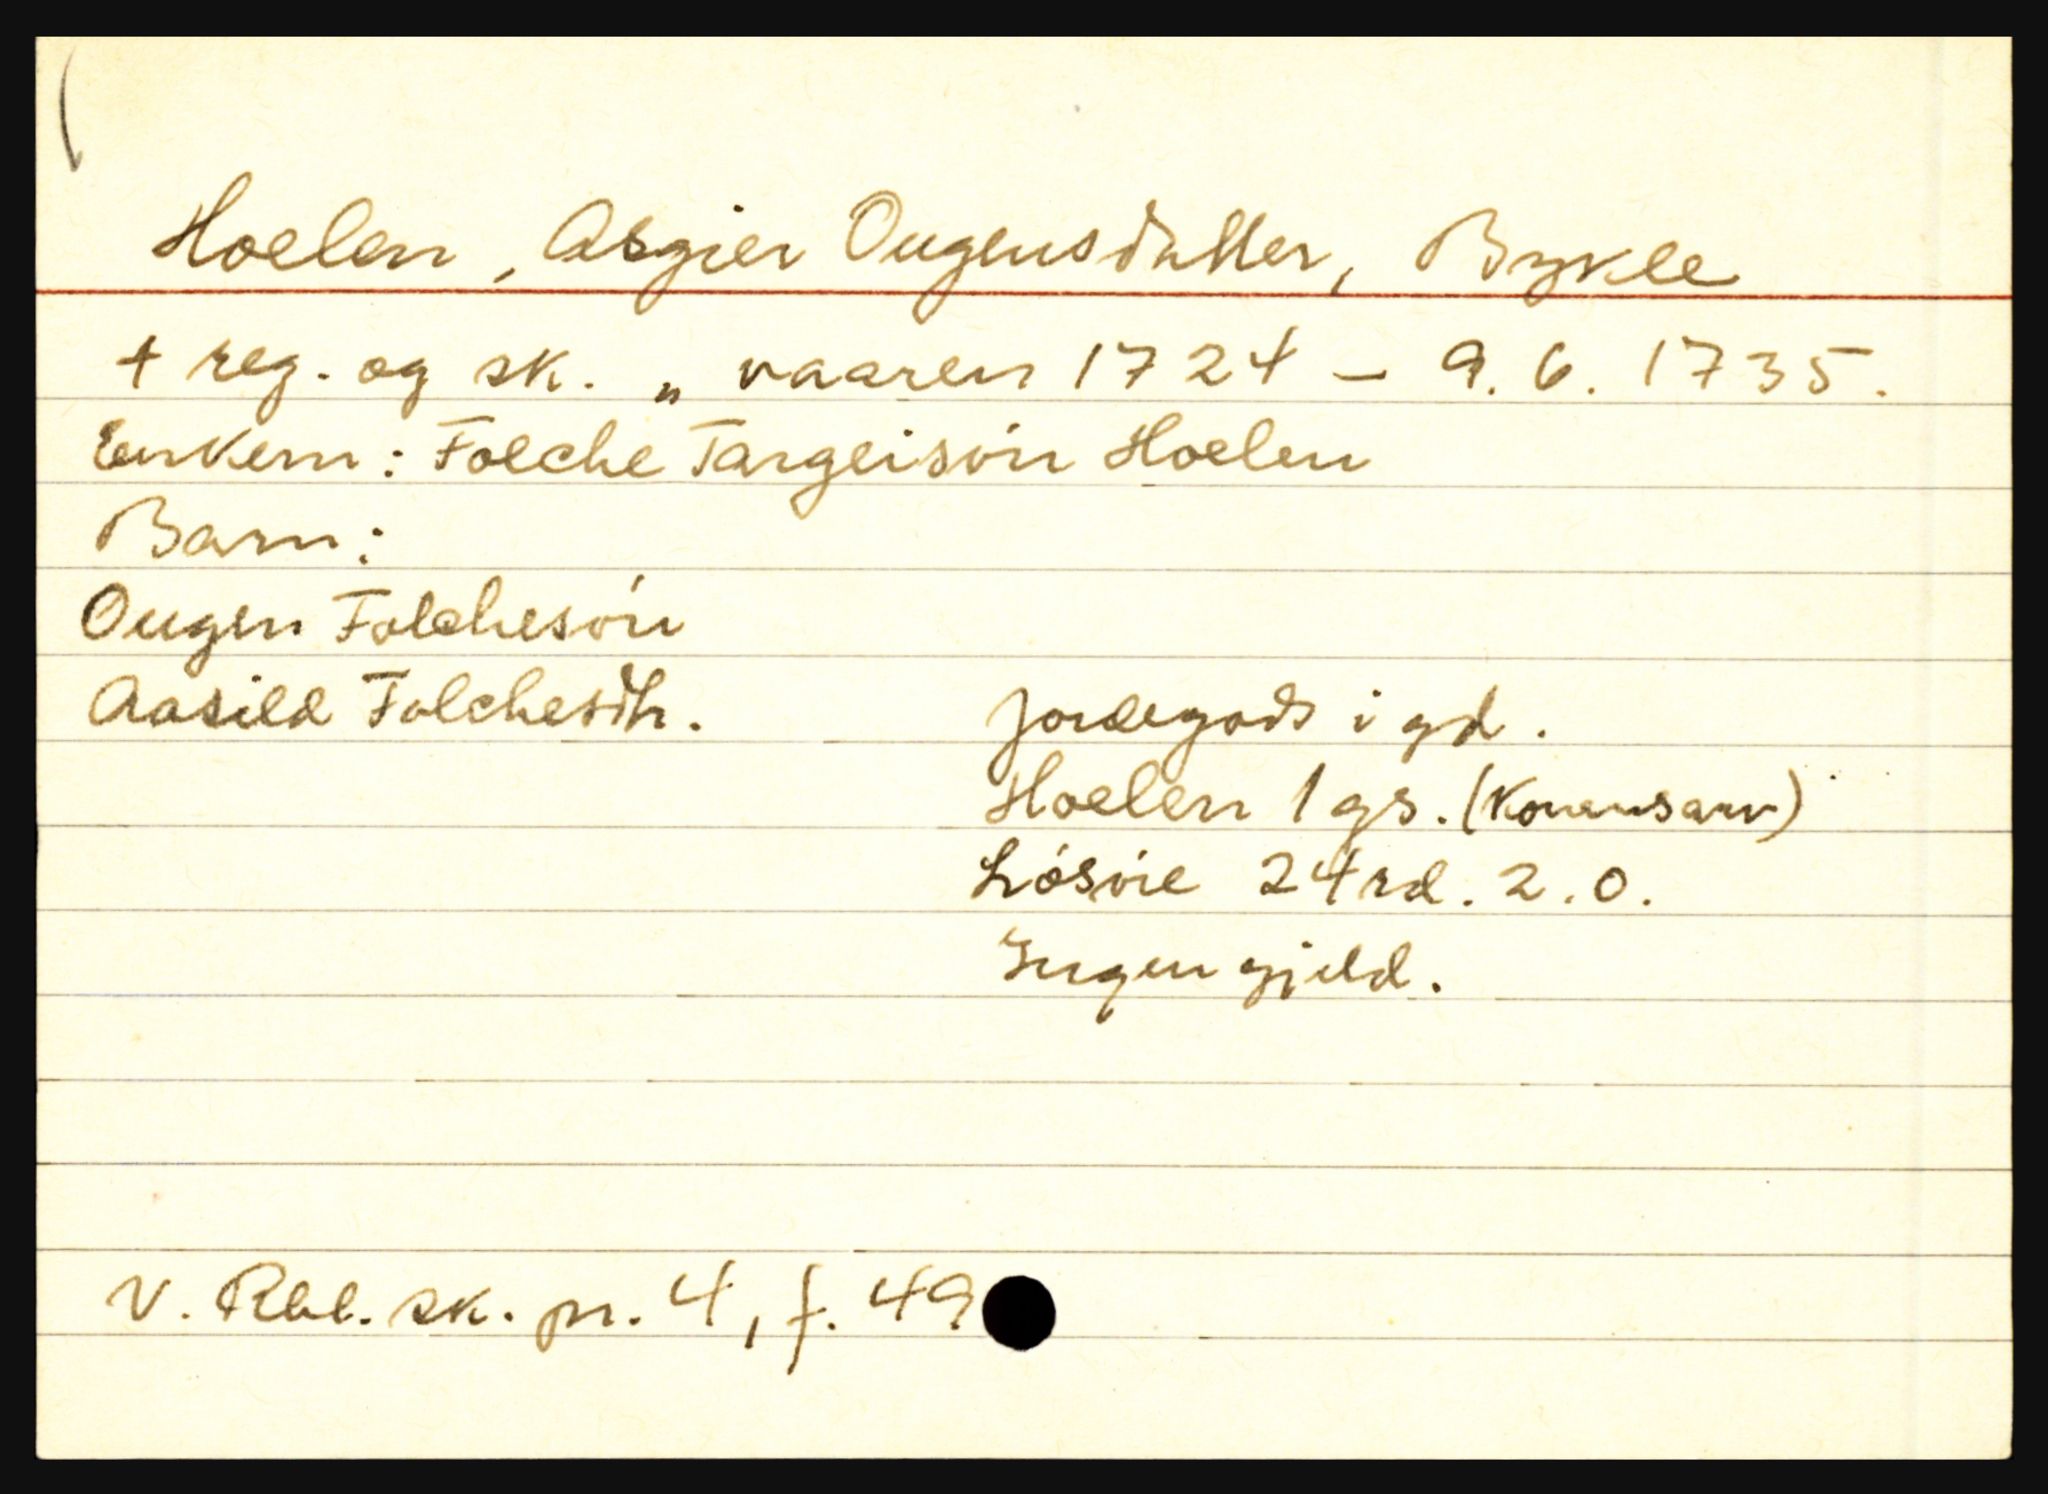 Hoelen, Asgier Ougensdatter, Bykle
+ reg. og sk. „ vaaren 1724 – 9.6.1735.
Enkem: Folche Targeisón Hoelen
Barn:
Ougen Folchesón
Aasild Folchesdtr.
Jordegods i gd.
Hoelen 1 gs. (Konensarv)
Lösöre 24 rd. 2.0.
Ingen gjeld.
V. Rbl. sk. pr. 4, f. 49